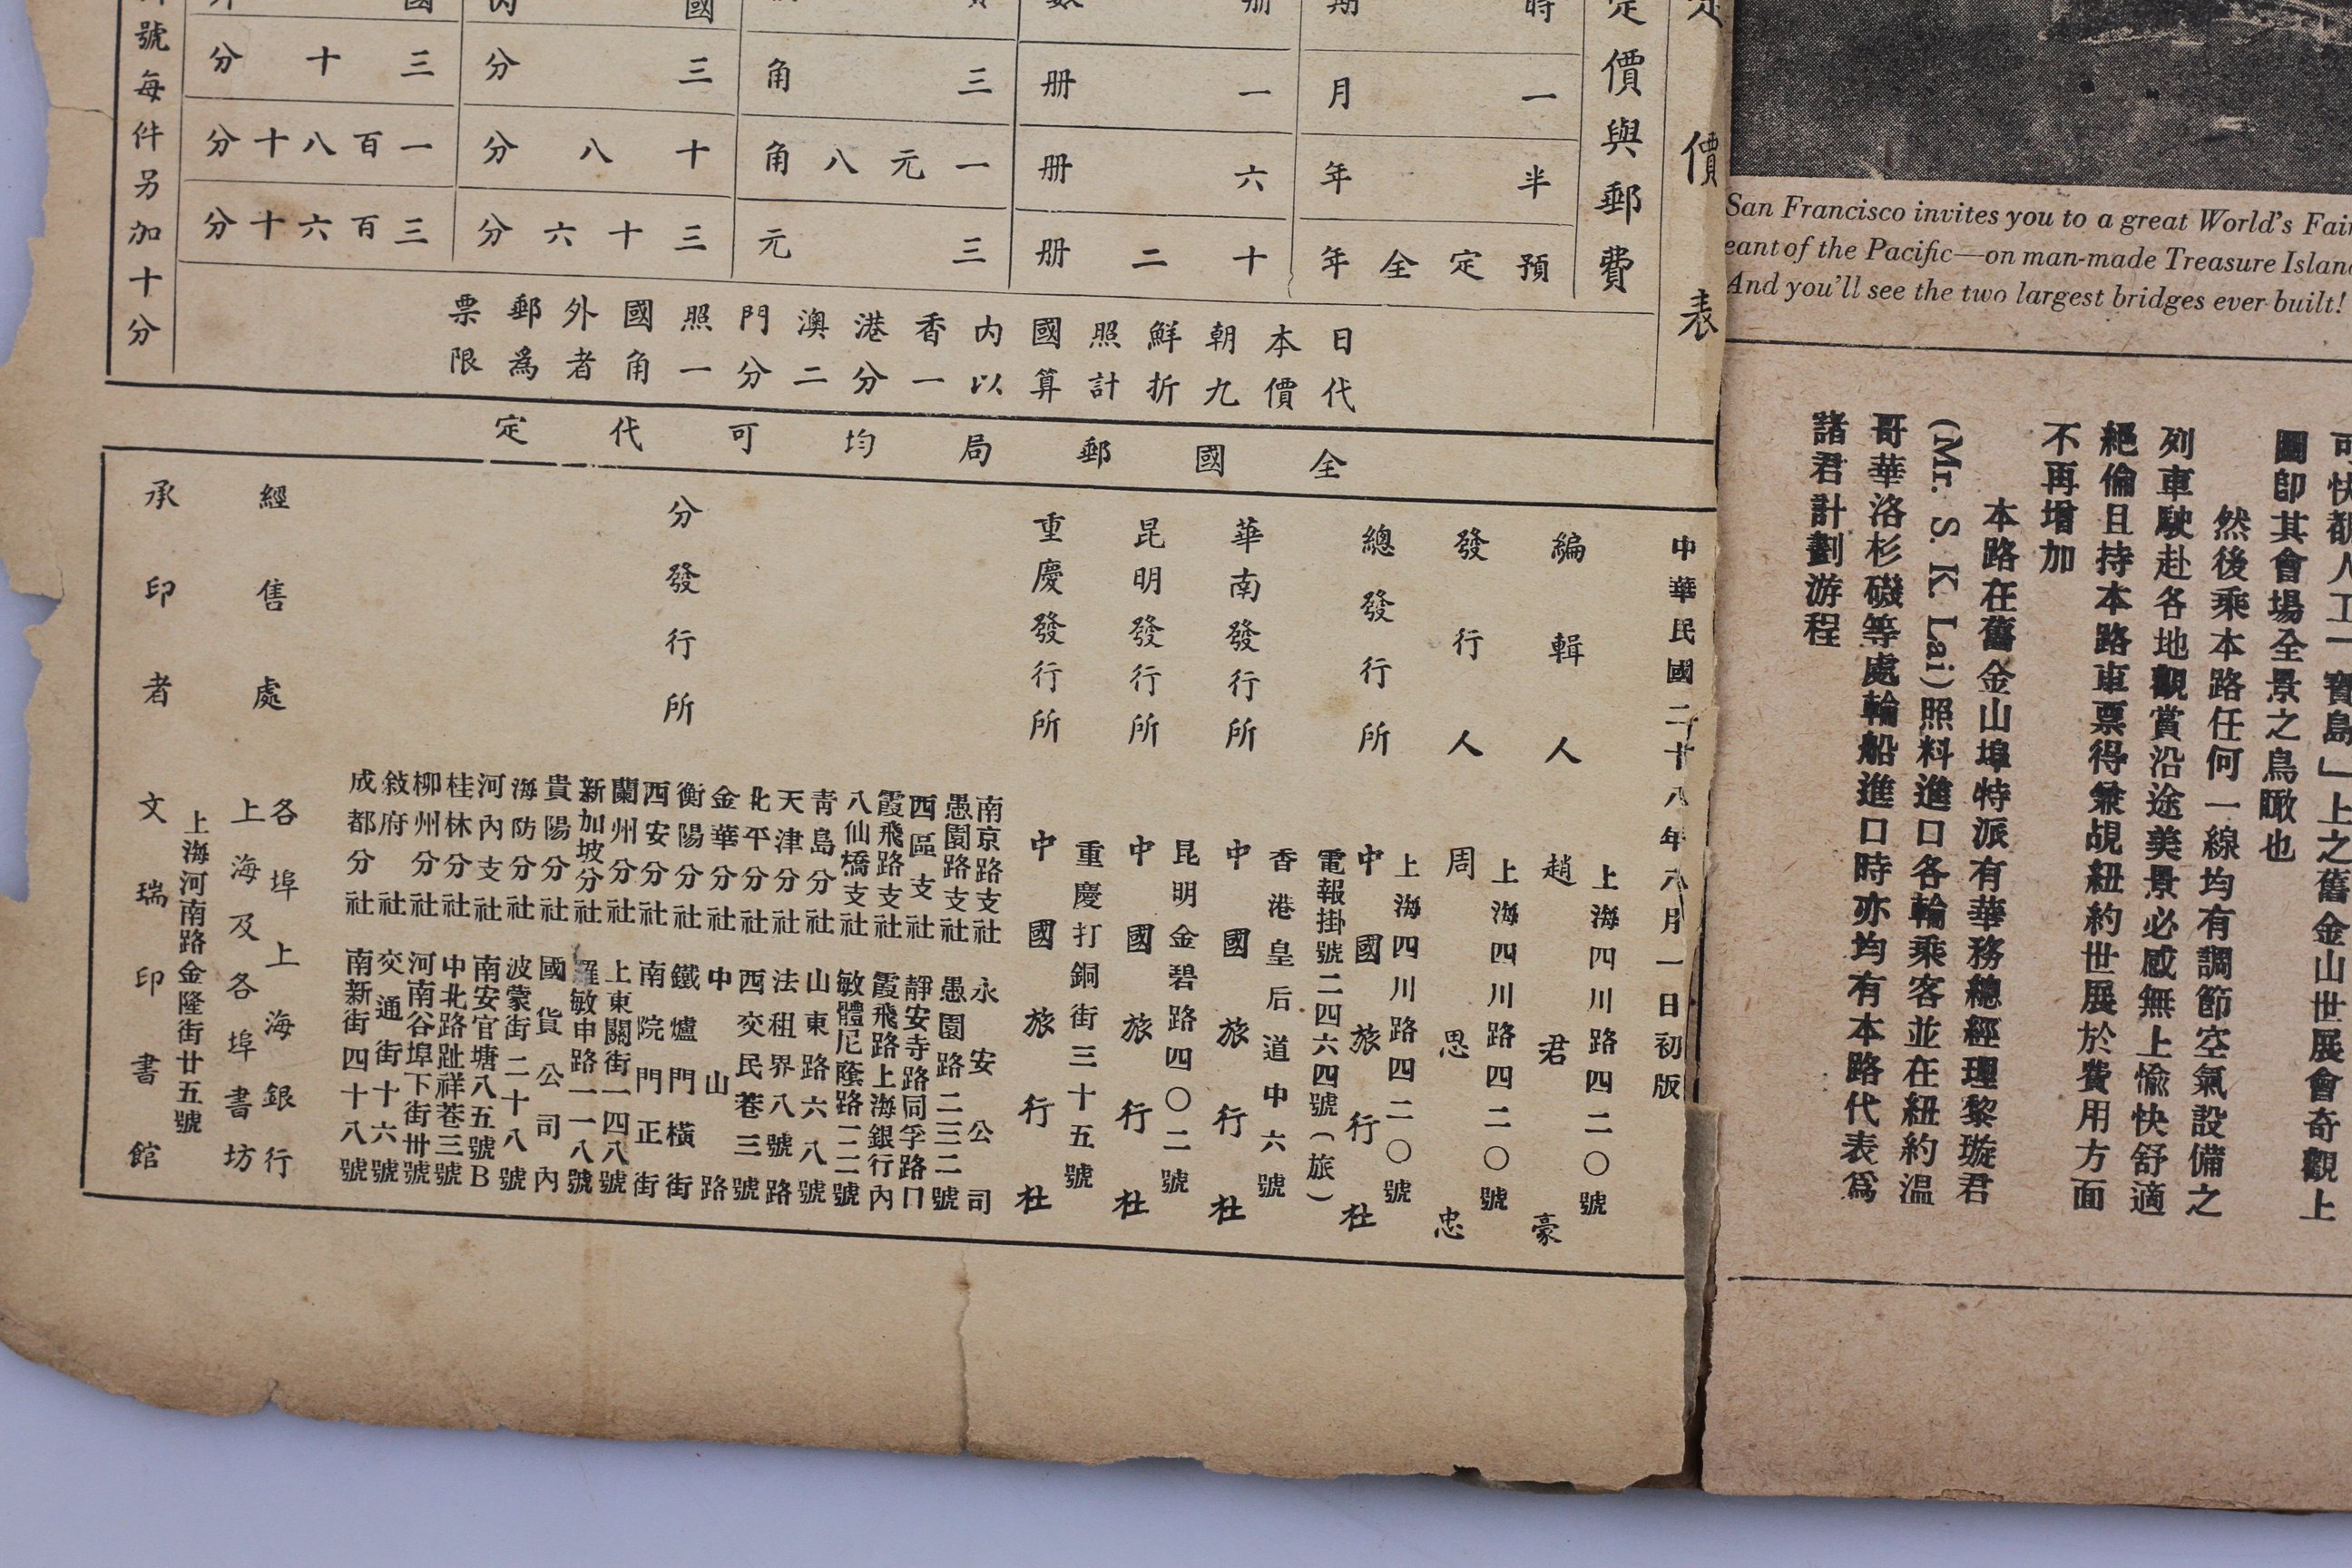 San Francisco invites you to a great World's Fair
eant of the Pacific—on man-made Treasure Island
And you'll see the two largest bridges ever built!
圖卽其會場全景之鳥瞰也
然後乘本路任何一線均有調節空氣設備之
列車駛赴各地觀賞沿途美景必感無上愉快舒適
絕倫且持本路車票得兼覘紐約世展於費用方面
不再增加
本路在舊金山埠特派有華務總經理黎璇君
(Mr. S. K. Lai)照料進口各輪乘客並在紐約溫
哥華洛杉磯等處輪船進口時亦均有本路代表爲
諸君計劃游程
價表
定價與郵費
時期
一月
半年
預定全年
册數
一册
六册
十二册
三角
一元八角
三元
國內
三分
十八分
三十六分
國外
三十分
一百八十分
三百六十分
號每件另加十分
日本朝鮮照國內香港澳門照國外郵票
代價九折計算以一分二分一角者爲限
全國郵局均可代定
中華民國二十八年六月一日初版
編輯人 趙君豪
上海四川路四二〇號
發行人 周思忠
上海四川路四二〇號
總發行所 中國旅行社
上海四川路四二〇號
電報掛號二四六四號（旅）
華南發行所 中國旅行社
香港皇后道中六號
昆明發行所 中國旅行社
昆明金碧路四〇二號
重慶發行所 中國旅行社
重慶打銅街三十五號
分發行所
南京路支社 永安公司
愚園路支社 愚園路二三二號
西區支社 靜安寺路同孚路口
霞飛路支社 霞飛路上海銀行內
八仙橋支社 敏體尼蔭路一二二號
青島分社 山東路六八號
天津分社 法租界八號路
北平分社 西交民巷三號
金華分社 中山路
衡陽分社 鐵爐門橫街
西安分社 南院門正街
蘭州分社 上東關街一四八號
新加坡分社 羅敏申路一一八號
貴陽分社 國貨公司內
海防分社 波蒙街二十八號
河內支社 南安官塘八五號B
桂林分社 中北路趾祥巷三號
柳州分社 河南谷埠下街卅號
敍府社 交通街十六號
成都分社 南新街四十八號
經售處
各埠上海銀行
上海及各埠書坊
承印者 文瑞印書館
上海河南路金隆街廿五號